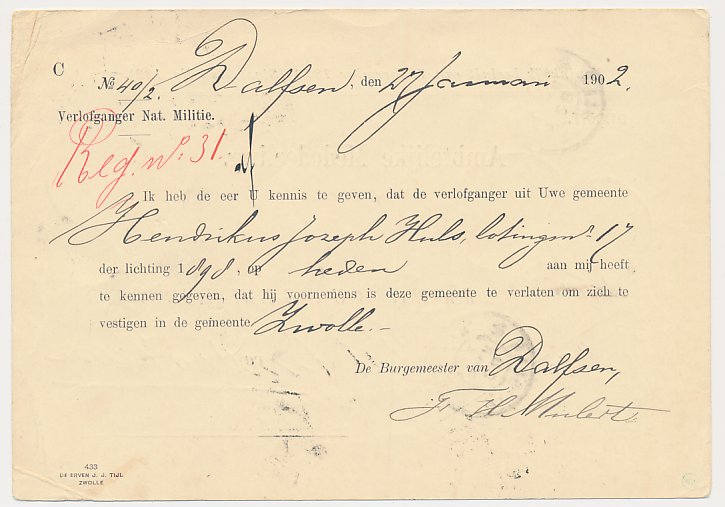 C
№ 49/2. Dalfsen, den 27 Januari 1902.
Verlofganger Nat. Militie.
Reg. No. 31.
Ik heb de eer U kennis te geven, dat de verlofganger uit Uwe gemeente
Hendrikus Jozeph Huls, lotingnr. 17
der lichting 1898. op heden aan mij heeft
te kennen gegeven, dat hij voornemens is deze gemeente te verlaten om zich te
vestigen in de gemeente Zwolle.—
De Burgemeester van Dalfsen,
Mulert
433
DE ERVEN J. J. TIJL
ZWOLLE